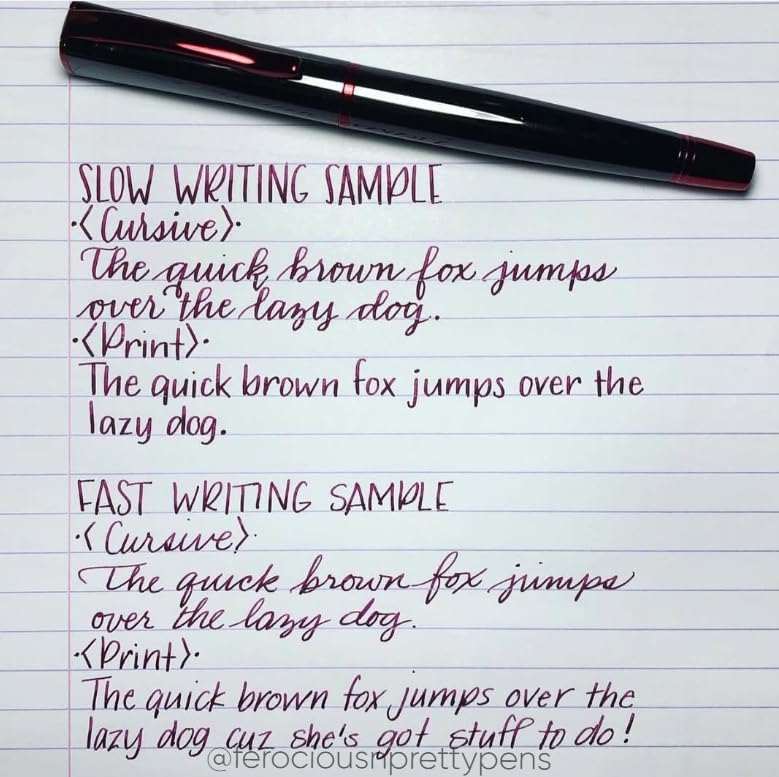 SLOW WRITING SAMPLE
·<Cursive>·
The quick brown fox jumps
over the lazy dog.
·<Print>·
The quick brown fox jumps over the
lazy dog.
FAST WRITING SAMPLE
·<Cursive>·
The quick brown fox jumps
over the lazy dog.
·<Print>·
The quick brown fox jumps over the
lazy dog cuz she's got stuff to do!
@ferociousnprettypens